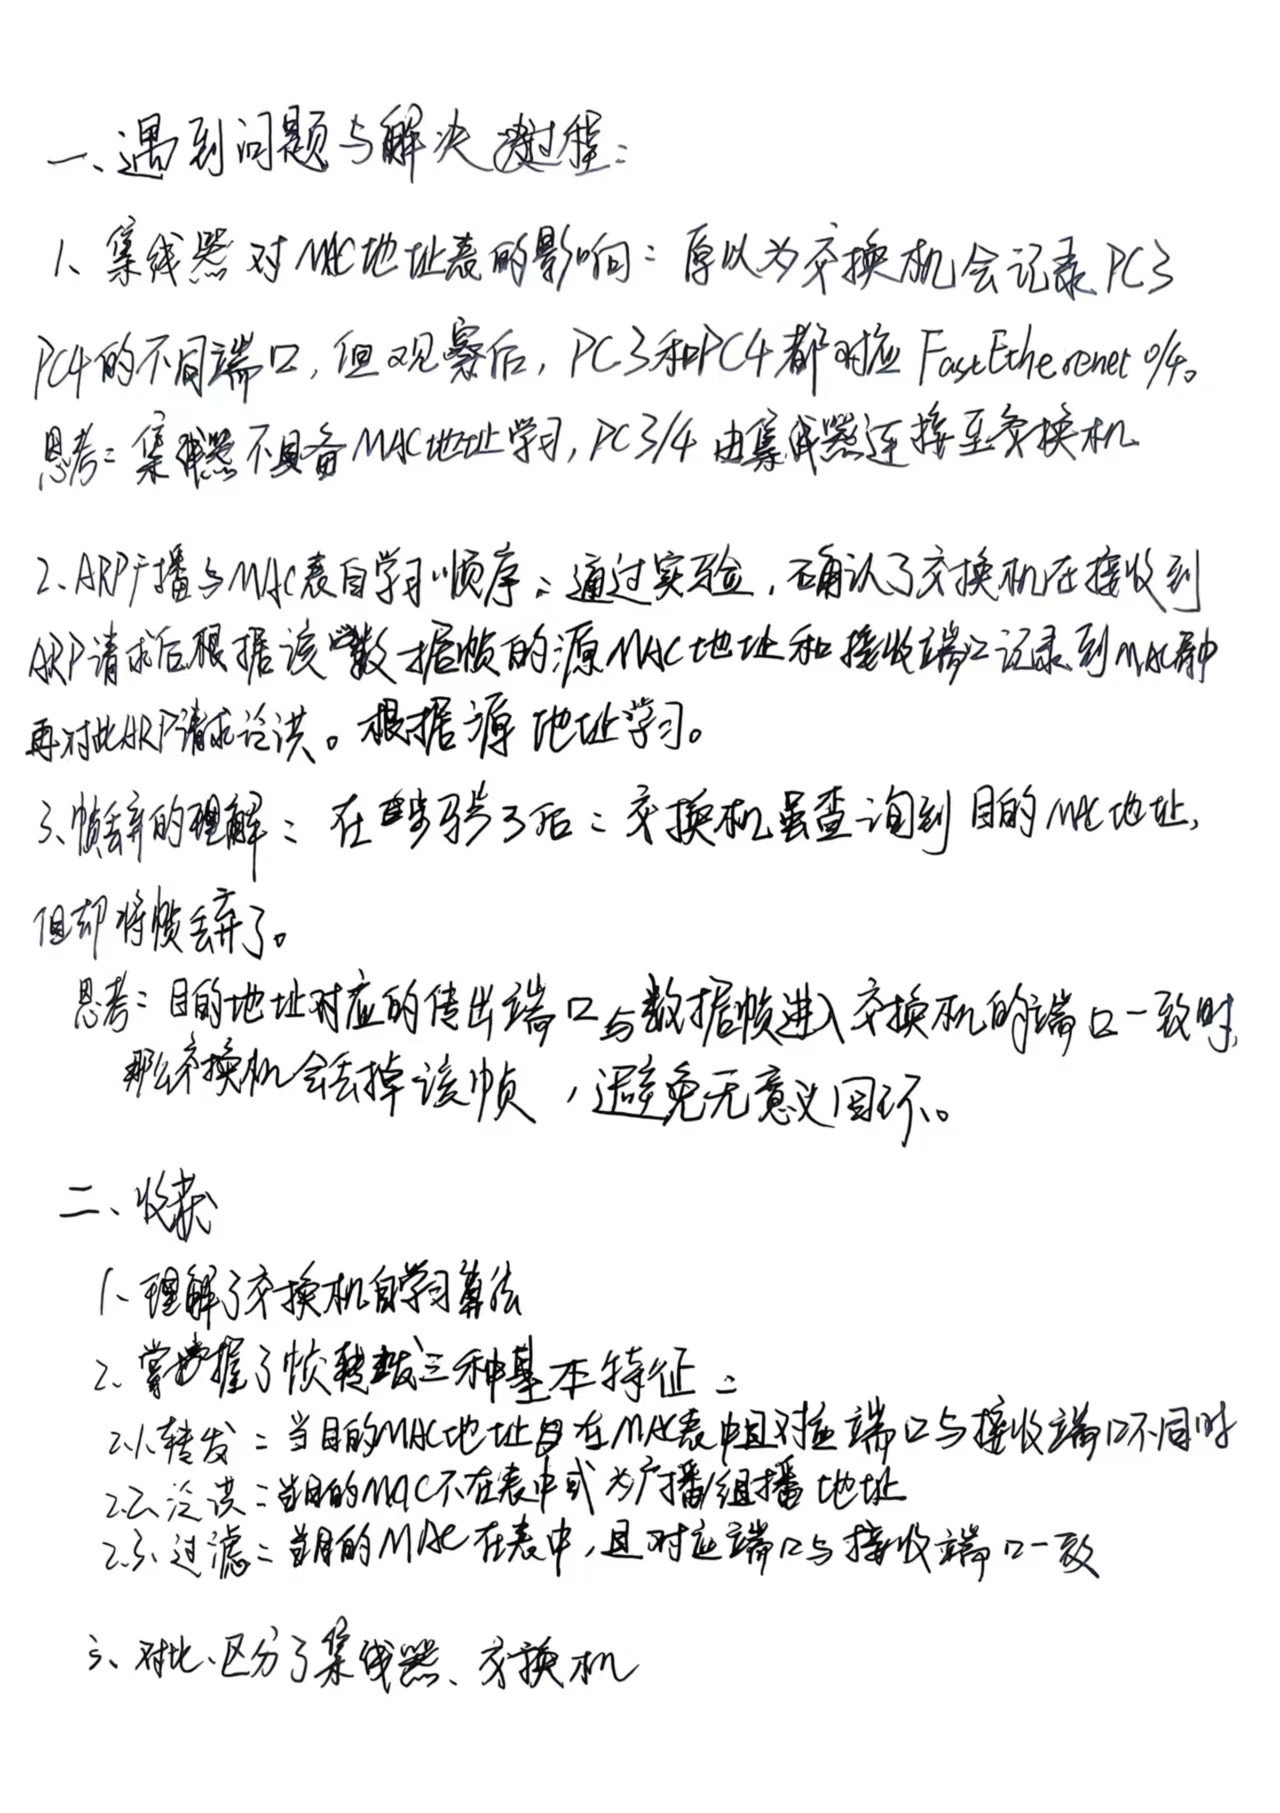 一、遇到问题与解决过程：
1、集线器对MAC地址表的影响：原以为交换机会记录PC3
PC4的不同端口，但观察后，PC3和PC4都对应FastEtherenet 0/4。
思考：集线器不具备MAC地址学习，PC3/4由集线器连接至交换机
2、ARP广播与MAC表自学习顺序：通过实验，确认了交换机在接收到
ARP请求后根据该数据帧的源MAC地址和接收端口记录到MAC表中
再对此ARP请求泛洪。根据源地址学习。
3、帧丢弃的理解：在步骤3后：交换机虽查询到目的MAC地址，
但却将帧丢弃了。
思考：目的地址对应的传出端口与数据帧进入交换机的端口一致时，
那么交换机会丢掉该帧，避免无意义回环。
二、收获
1、理解了交换机自学习算法
2、掌握了帧转发三种基本特征：
2.1、转发：当目的MAC地址在MAC表中且对应端口与接收端口不同时
2.2、泛洪：当目的MAC不在表中或为广播/组播地址
2.3、过滤：当目的MAC在表中，且对应端口与接收端口一致
3、对比、区分了集线器、交换机